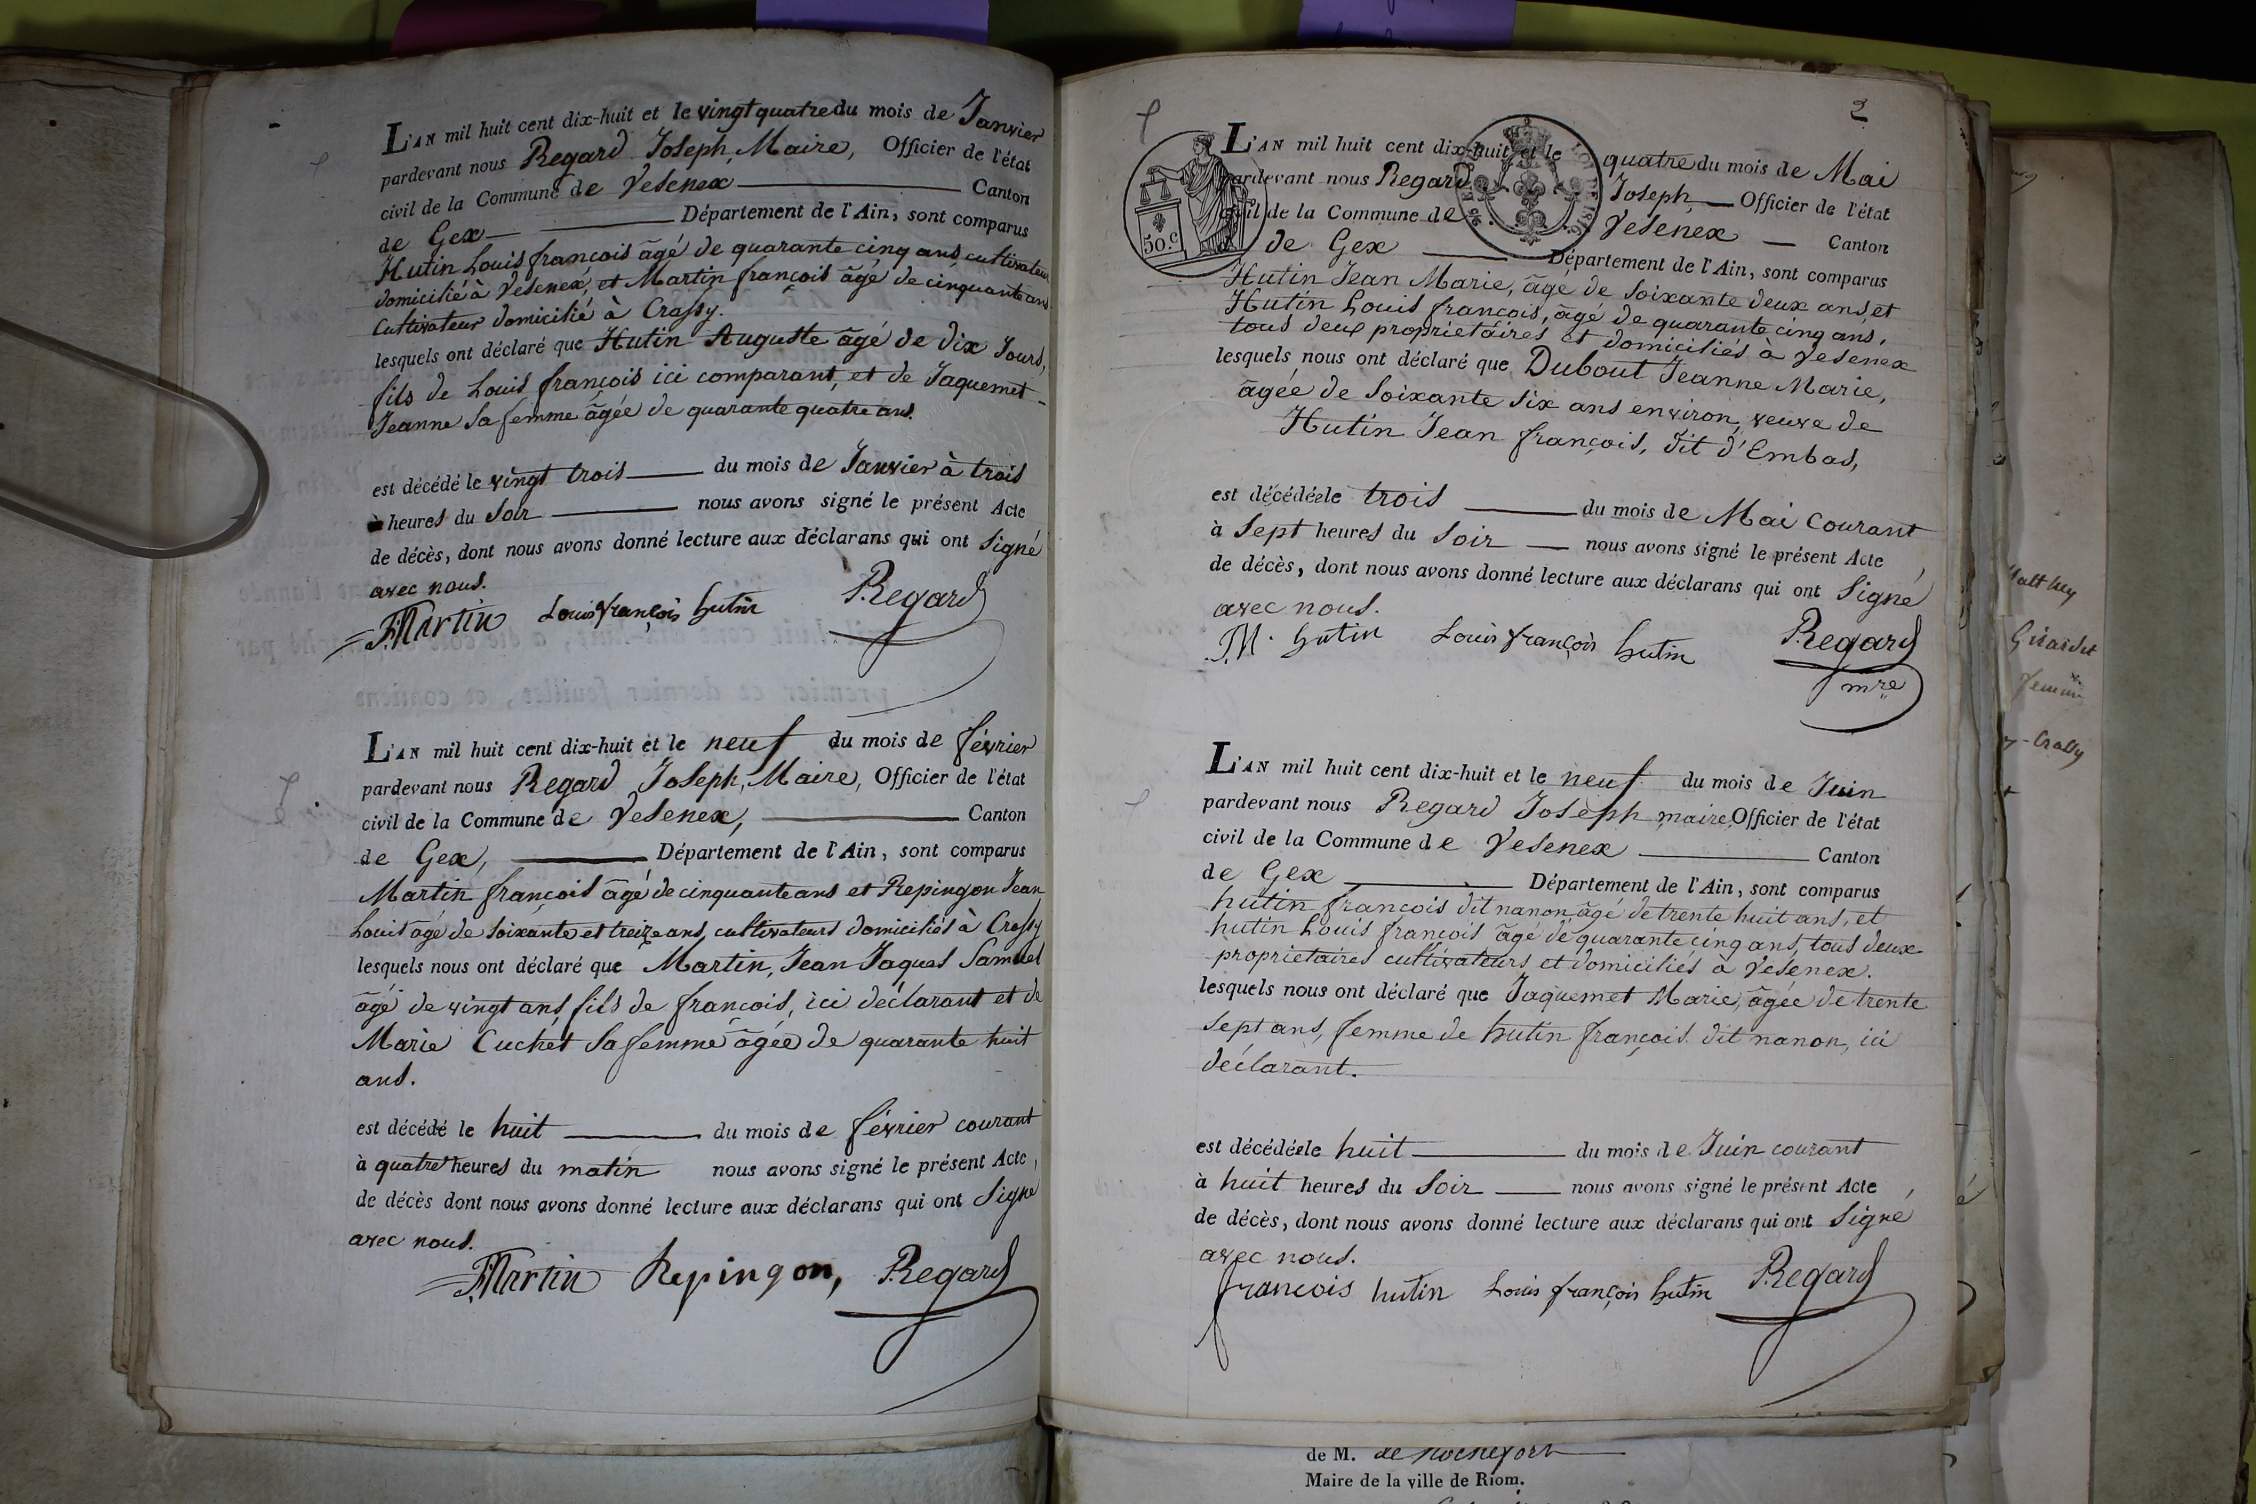 L'AN mil huit cent dix-huit et le vingt quatre du mois de Janvier
pardevant nous Regard Joseph, Maire, Officier de l'état
civil de la Commune de Vesenex Canton
de Gex Département de l'Ain, sont comparus
Hutin Louis françois âgé de quarante cinq ans cultivateur
domicilié à Vesenex, et Martin françois âgé de cinquante ans
Cultivateur domicilié à Crassy.
lesquels ont déclaré que Hutin Auguste âgé de dix Jours,
fils de Louis françois ici comparant, et de Jaquemet-
Jeanne sa femme âgée de quarante quatre ans.
est décédé le vingt trois du mois de Janvier à trois
heures du Soir nous avons signé le présent Acte
de décès, dont nous avons donné lecture aux déclarans qui ont signé
avec nous.
FMartin Louis françois hutin Regard
L'AN mil huit cent dix-huit et le neuf du mois de février
pardevant nous Regard Joseph, Maire, Officier de l'état
civil de la Commune de Vesenex, Canton
de Gex, Département de l'Ain, sont comparus
Martin françois âgé de cinquante ans et Repingon Jean
Louis âgé de soixante et treize ans, cultivateurs domiciliés à Crassy
lesquels nous ont déclaré que Martin, Jean Jaques Samuel
âgé de vingt ans, fils de françois, ici déclarant et de
Marie Cuchet sa femme âgée de quarante huit
ans.
est décédé le huit du mois de février courant
à quatre heures du matin nous avons signé le présent Acte,
de décès dont nous avons donné lecture aux déclarans qui ont signé
avec nous.
FMartin Repingon, Regard
2
50.c
LOI DE 1816
L'AN mil huit cent dix-huit et le quatre du mois de Mai
pardevant nous Regard Joseph, Officier de l'état
civil de la Commune de Vesenex Canton
de Gex Département de l'Ain, sont comparus
Hutin Jean Marie, âgé de soixante deux ans et
Hutin Louis françois, âgé de quarante cinq ans,
tous deux proprietaires et domiciliés à Vesenex
lesquels nous ont déclaré que Dubout Jeanne Marie,
âgée de soixante six ans environ, veuve de
Hutin Jean françois, dit d'Embas,
est décédée le trois du mois de Mai courant
à sept heures du soir nous avons signé le présent Acte
de décès, dont nous avons donné lecture aux déclarans qui ont signé
avec nous.
JM. hutin Louis françois hutin Regard
mre
L'AN mil huit cent dix-huit et le neuf du mois de Juin
pardevant nous Regard Joseph maire, Officier de l'état
civil de la Commune de Vesenex Canton
de Gex Département de l'Ain, sont comparus
hutin françois dit nanon, âgé de trente huit ans, et
hutin Louis françois âgé de quarante cinq ans, tous deux
proprietaires cultivateurs et domiciliés à Vesenex.
lesquels nous ont déclaré que Jaquemet Marie, âgée de trente
sept ans, femme de hutin françois dit nanon, ici
déclarant.
est décédée le huit du mois de Juin courant
à huit heures du soir nous avons signé le présent Acte,
de décès, dont nous avons donné lecture aux déclarans qui ont signé
avec nous.
francois hutin Louis françois hutin Regard
Girardet
Crassy
de M. de Rochefort
Maire de la ville de Riom.